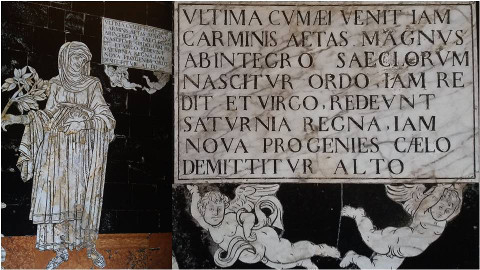 VLTIMA CVMÆI VENIT IAM
CARMINIS AETAS MAGNVS
ABINTEGRO SAECLORVM
NASCITVR ORDO, IAM RE
DIT ET VIRGO, REDEVNT
SATVRNIA REGNA, IAM
NOVA PROGENIES CÆLO
DEMITTITVR ALTO